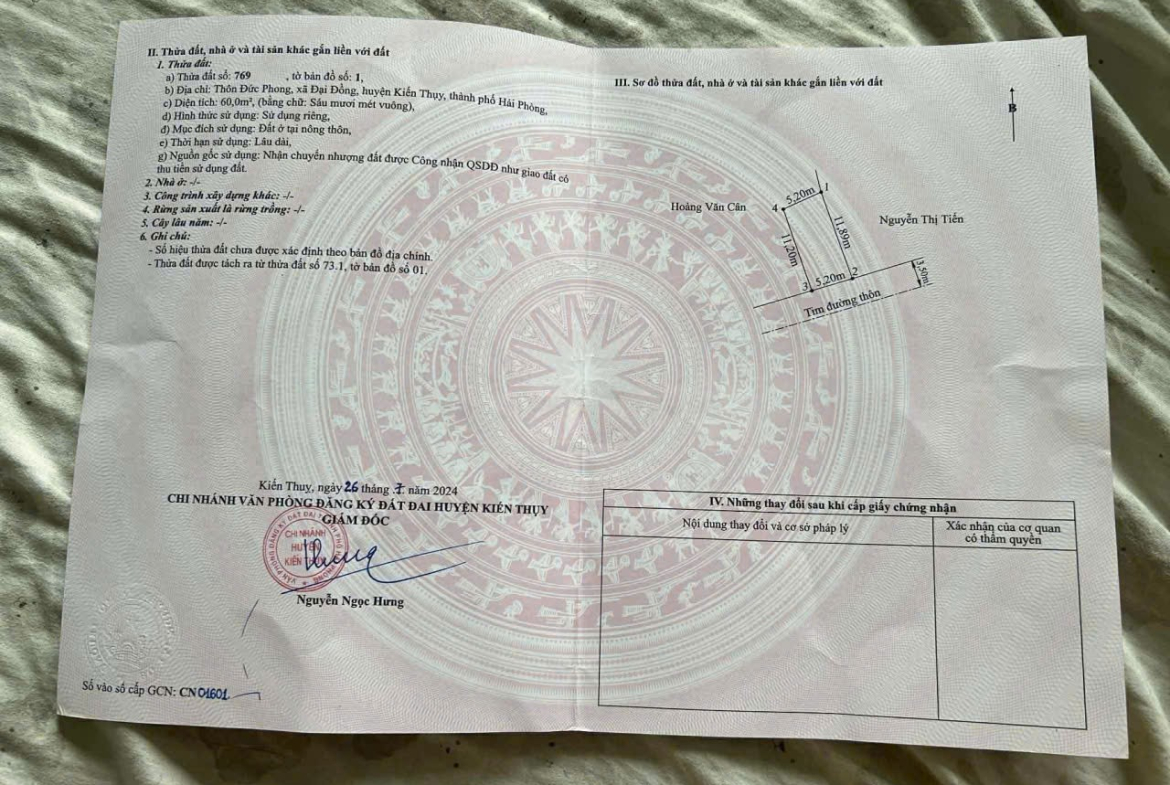 II. Thửa đất, nhà ở và tài sản khác gắn liền với đất
1. Thửa đất:
a) Thửa đất số: 769 , tờ bản đồ số: 1,
b) Địa chỉ: Thôn Đức Phong, xã Đại Đồng, huyện Kiến Thụy, thành phố Hải Phòng,
c) Diện tích: 60,0m², (bằng chữ: Sáu mươi mét vuông),
d) Hình thức sử dụng: Sử dụng riêng,
đ) Mục đích sử dụng: Đất ở tại nông thôn,
e) Thời hạn sử dụng: Lâu dài,
g) Nguồn gốc sử dụng: Nhận chuyển nhượng đất được Công nhận QSDĐ như giao đất có
thu tiền sử dụng đất.
2. Nhà ở: -/-
3. Công trình xây dựng khác: -/-
4. Rừng sản xuất là rừng trồng: -/-
5. Cây lâu năm: -/-
6. Ghi chú:
- Số hiệu thửa đất chưa được xác định theo bản đồ địa chính.
- Thửa đất được tách ra từ thửa đất số 73.1, tờ bản đồ số 01.
Kiến Thụy, ngày 26 tháng 7 năm 2024
CHI NHÁNH VĂN PHÒNG ĐĂNG KÝ ĐẤT ĐAI HUYỆN KIẾN THỤY
GIÁM ĐỐC
CHI NHÁNH
HUYỆN
KIẾN THỤY
Nguyễn Ngọc Hưng
Số vào sổ cấp GCN: CN 01601
III. Sơ đồ thửa đất, nhà ở và tài sản khác gắn liền với đất
B
Hoàng Văn Cân
Nguyễn Thị Tiến
4
5,20m
1
11,20m
11,89m
3
5,20m
2
3,50m
Tim đường thôn
IV. Những thay đổi sau khi cấp giấy chứng nhận
Nội dung thay đổi và cơ sở pháp lý
Xác nhận của cơ quan
có thẩm quyền